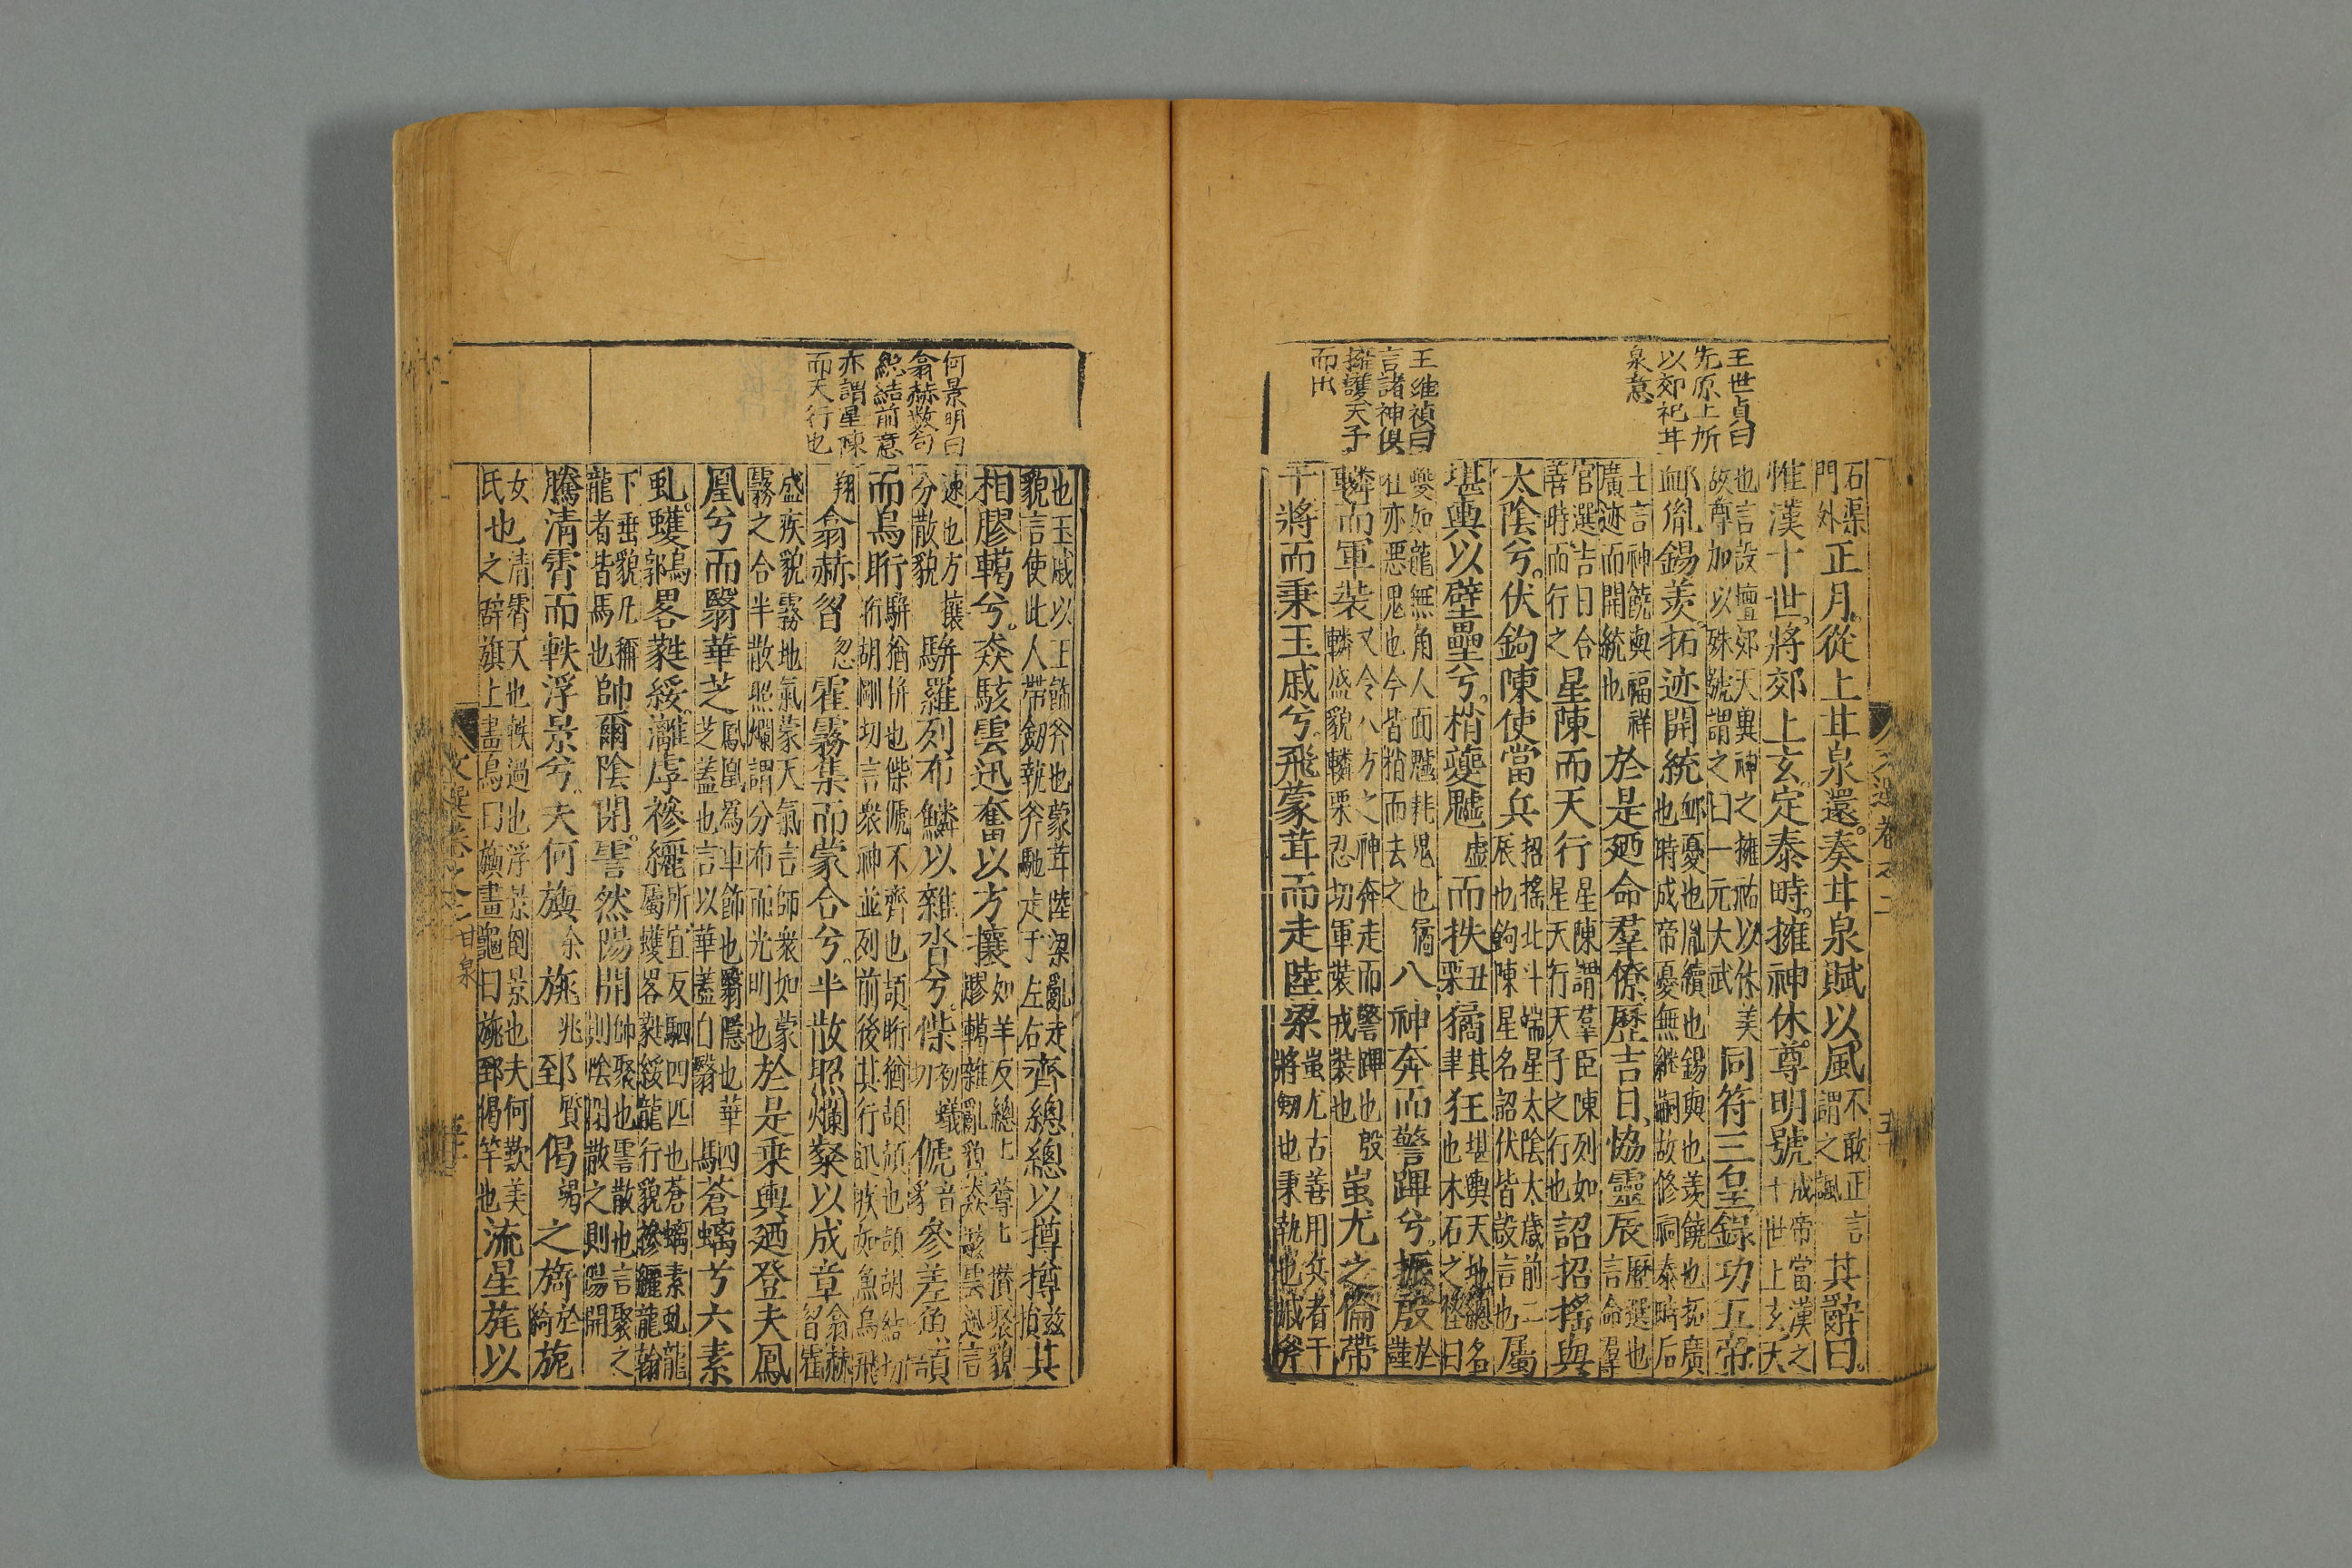 王世貞曰
先原上所
以郊祀甘
泉意
王維禎曰
言諸神俱
擁護天子
而出
石渠門外正月從上甘泉還奏甘泉賦以風不敢正言謂之諷其辭曰
惟漢十世將郊上玄定泰畤擁神休尊明號成帝當漢之十世上玄天
也言設壇郊天與神之擁祐以休美故尊加以殊號謂之曰一元大武同符三皇錄功五帝
卹胤錫羨拓迹開統卹憂也胤續也錫與也羨饒也拓廣也時成帝憂無繼嗣故修祠泰畤后
土言神饒與福祥廣迹而開統也於是廼命羣僚歷吉日協靈辰歷選也言命羣
官選吉日合善時而行之星陳而天行星陳謂羣臣陳列如星天行天子之行也詔招搖與
太陰兮伏鉤陳使當兵招搖北斗端星太陰太歲前二辰也鉤陳星名詔伏皆設言也屬
堪輿以壁壘兮梢夔魖虛而抶丑栗獝其聿狂堪輿天地總名也木石之怪曰
夔如龍無角人面魖耗鬼也獝狂亦惡鬼也今皆梢而去之八神奔而警蹕兮振殷於謹
轔而軍裝又令八方之神奔走而警蹕也殷轔盛貌轔栗忍切軍裝戎裝也蚩尤之倫帶
干將而秉玉戚兮飛蒙茸而走陸梁蚩尤古善用兵者干將劒也秉執也戚斧
何景明曰
翕赫數句
總結前意
亦謂星陳
而天行也
也玉戚以玉飾斧也蒙茸陸梁亂走貌言使此人帶劒執斧馳走于左右齊總總以撙撙茲損其
相膠轕兮猋駭雲迅奮以方攘如羊反總上尊上攢聚貌膠轕雜亂貌猋駭雲迅言
速也方攘分散貌駢羅列布鱗以雜沓兮傑初蟻切傂音豸參差魚頡
而鳥䀪駢猶併也傑傂不齊也頡䀪猶頡頏也頡胡結切䀪胡剛切言衆神並列前後其行訊疾如魚鳥飛
翔翕赫曶忽霍霧集而蒙合兮半散照爛粲以成章翕赫曶霍
盛疾貌霧地氣蒙天氣言師衆如蒙霧之合半散照爛謂分布而光明也於是乘輿廼登夫鳳
凰兮而翳華芝鳳凰爲車飾也翳隱也華芝蓋也言以華蓋自翳駟蒼螭兮六素
虬蠖鳥郭畧蕤綏灕虖襂纚所宜反駟四匹也蒼螭素虬龍屬蠖畧蕤綏龍行貌襂纚龍翰
下垂貌凡稱龍者皆馬也帥爾陰閉霅然陽開帥聚也霅散也言聚之則陰閉散之則陽開
騰清霄而軼浮景兮夫何旟余旐兆郅質偈竭之旖於綺旎
女氏也清霄天也軼過也浮景倒景也夫何歎美之辭旗上畫鳥曰旟畫龜曰旐郅偈竿也流星旄以
文選卷之二
甘泉
五